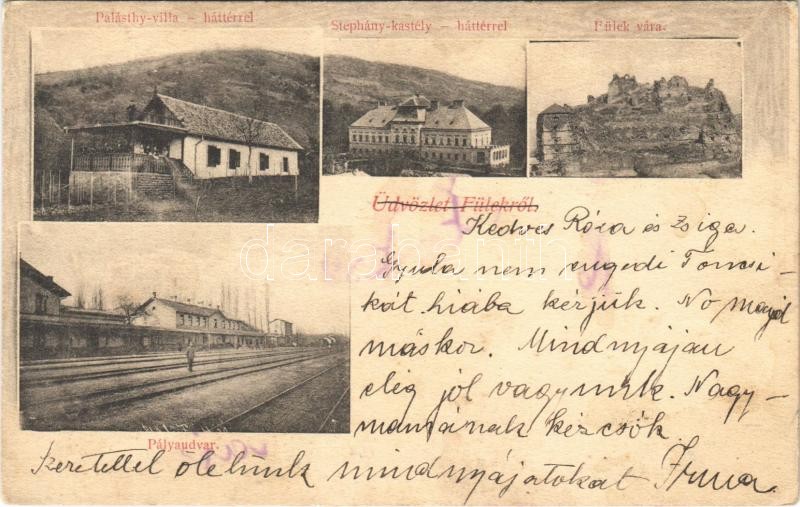 Palásthy-villa – háttérrel
Stephány-kastély – háttérrel
Fülek vára.
Üdvözlet Fülekről.
Kedves Róza és Zsiga.
Gyula nem engedi Toncsi-
kát hiába kérjük. No majd
máskor. Mindnyájan
elég jól vagyunk. Nagy-
mamának kézcsók
Pályaudvar.
Szeretettel ölelünk mindnyájatokat Irma
darabanth